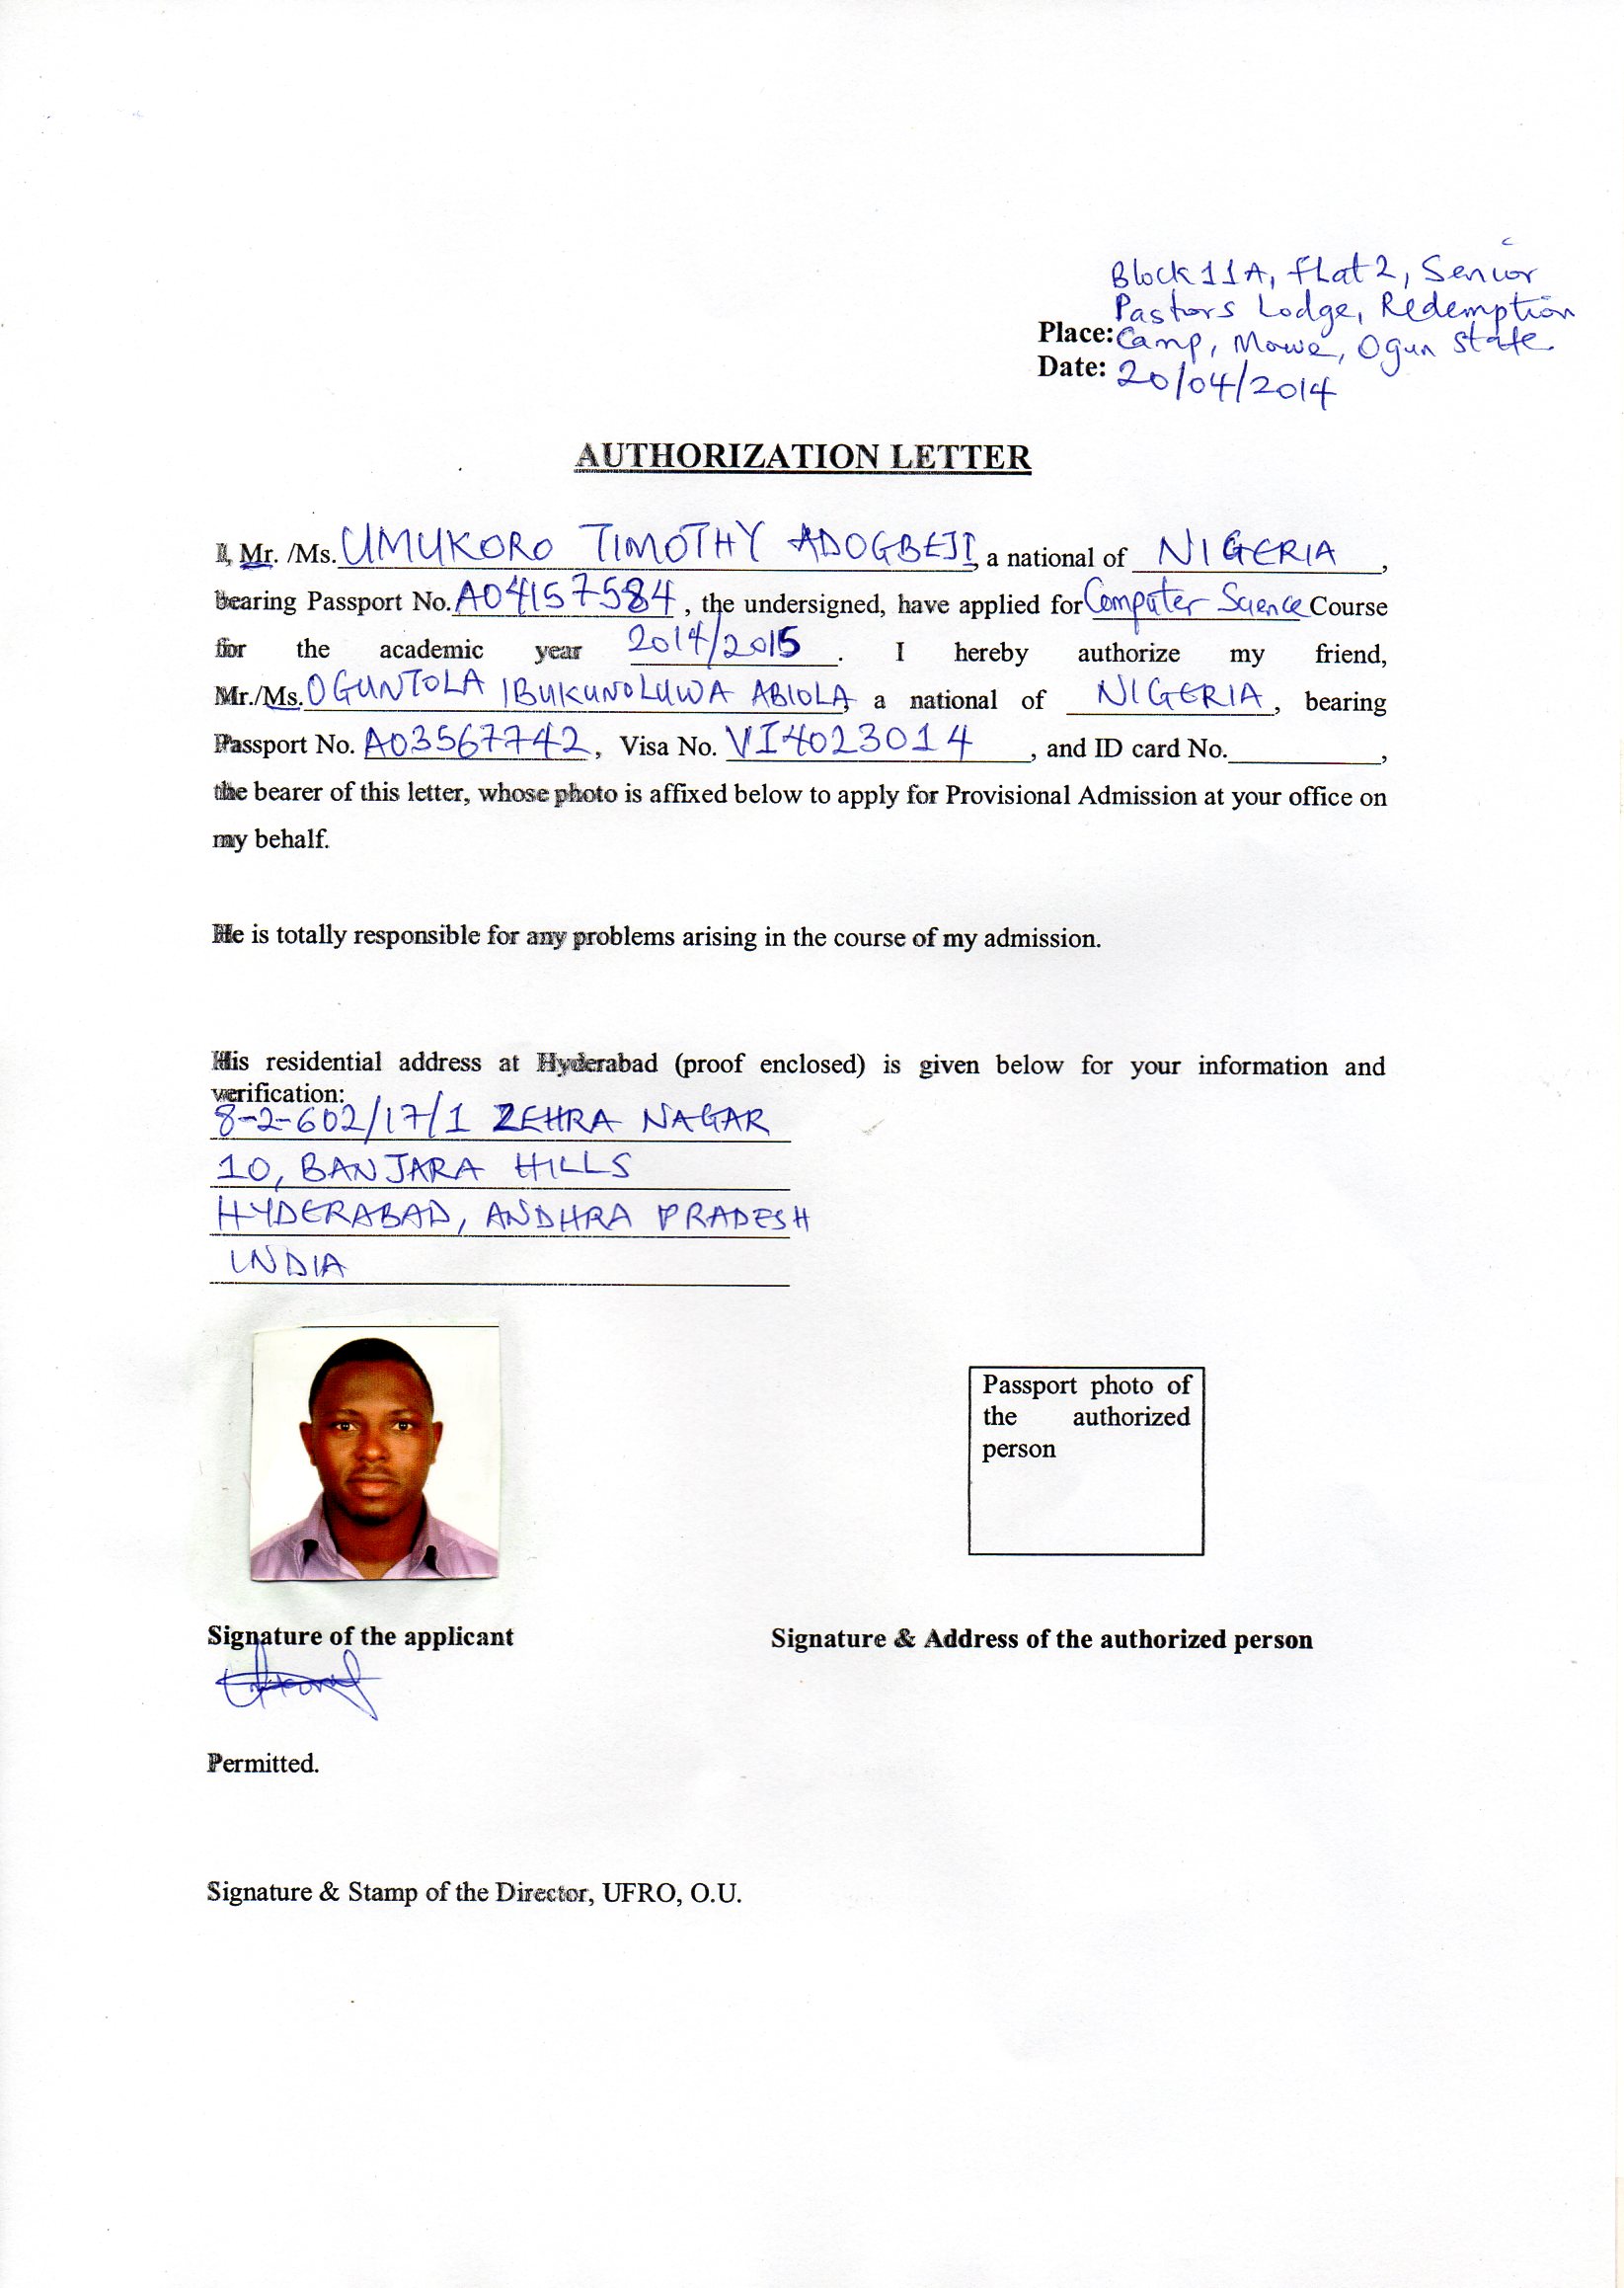 Block 11A, flat 2, Senior
Pastors Lodge, Redemption
Place: Camp, Mowe, Ogun State
Date: 20/04/2014
AUTHORIZATION LETTER
I, Mr. /Ms. UMUKORO TIMOTHY ADOGBEJI, a national of NIGERIA,
bearing Passport No. A04157584, the undersigned, have applied for Computer Science Course
for the academic year 2014/2015. I hereby authorize my friend,
Mr./Ms. OGUNTOLA IBUKUNOLUWA ABIOLA, a national of NIGERIA, bearing
Passport No. A03567742, Visa No. VI4023014, and ID card No.                ,
the bearer of this letter, whose photo is affixed below to apply for Provisional Admission at your office on
my behalf.
He is totally responsible for any problems arising in the course of my admission.
His residential address at Hyderabad (proof enclosed) is given below for your information and
verification:
8-2-602/17/1 ZEHRA NAGAR
10, BANJARA HILLS
HYDERABAD, ANDHRA PRADESH
INDIA
Passport photo of
the authorized
person
Signature of the applicant
Signature & Address of the authorized person
Permitted.
Signature & Stamp of the Director, UFRO, O.U.